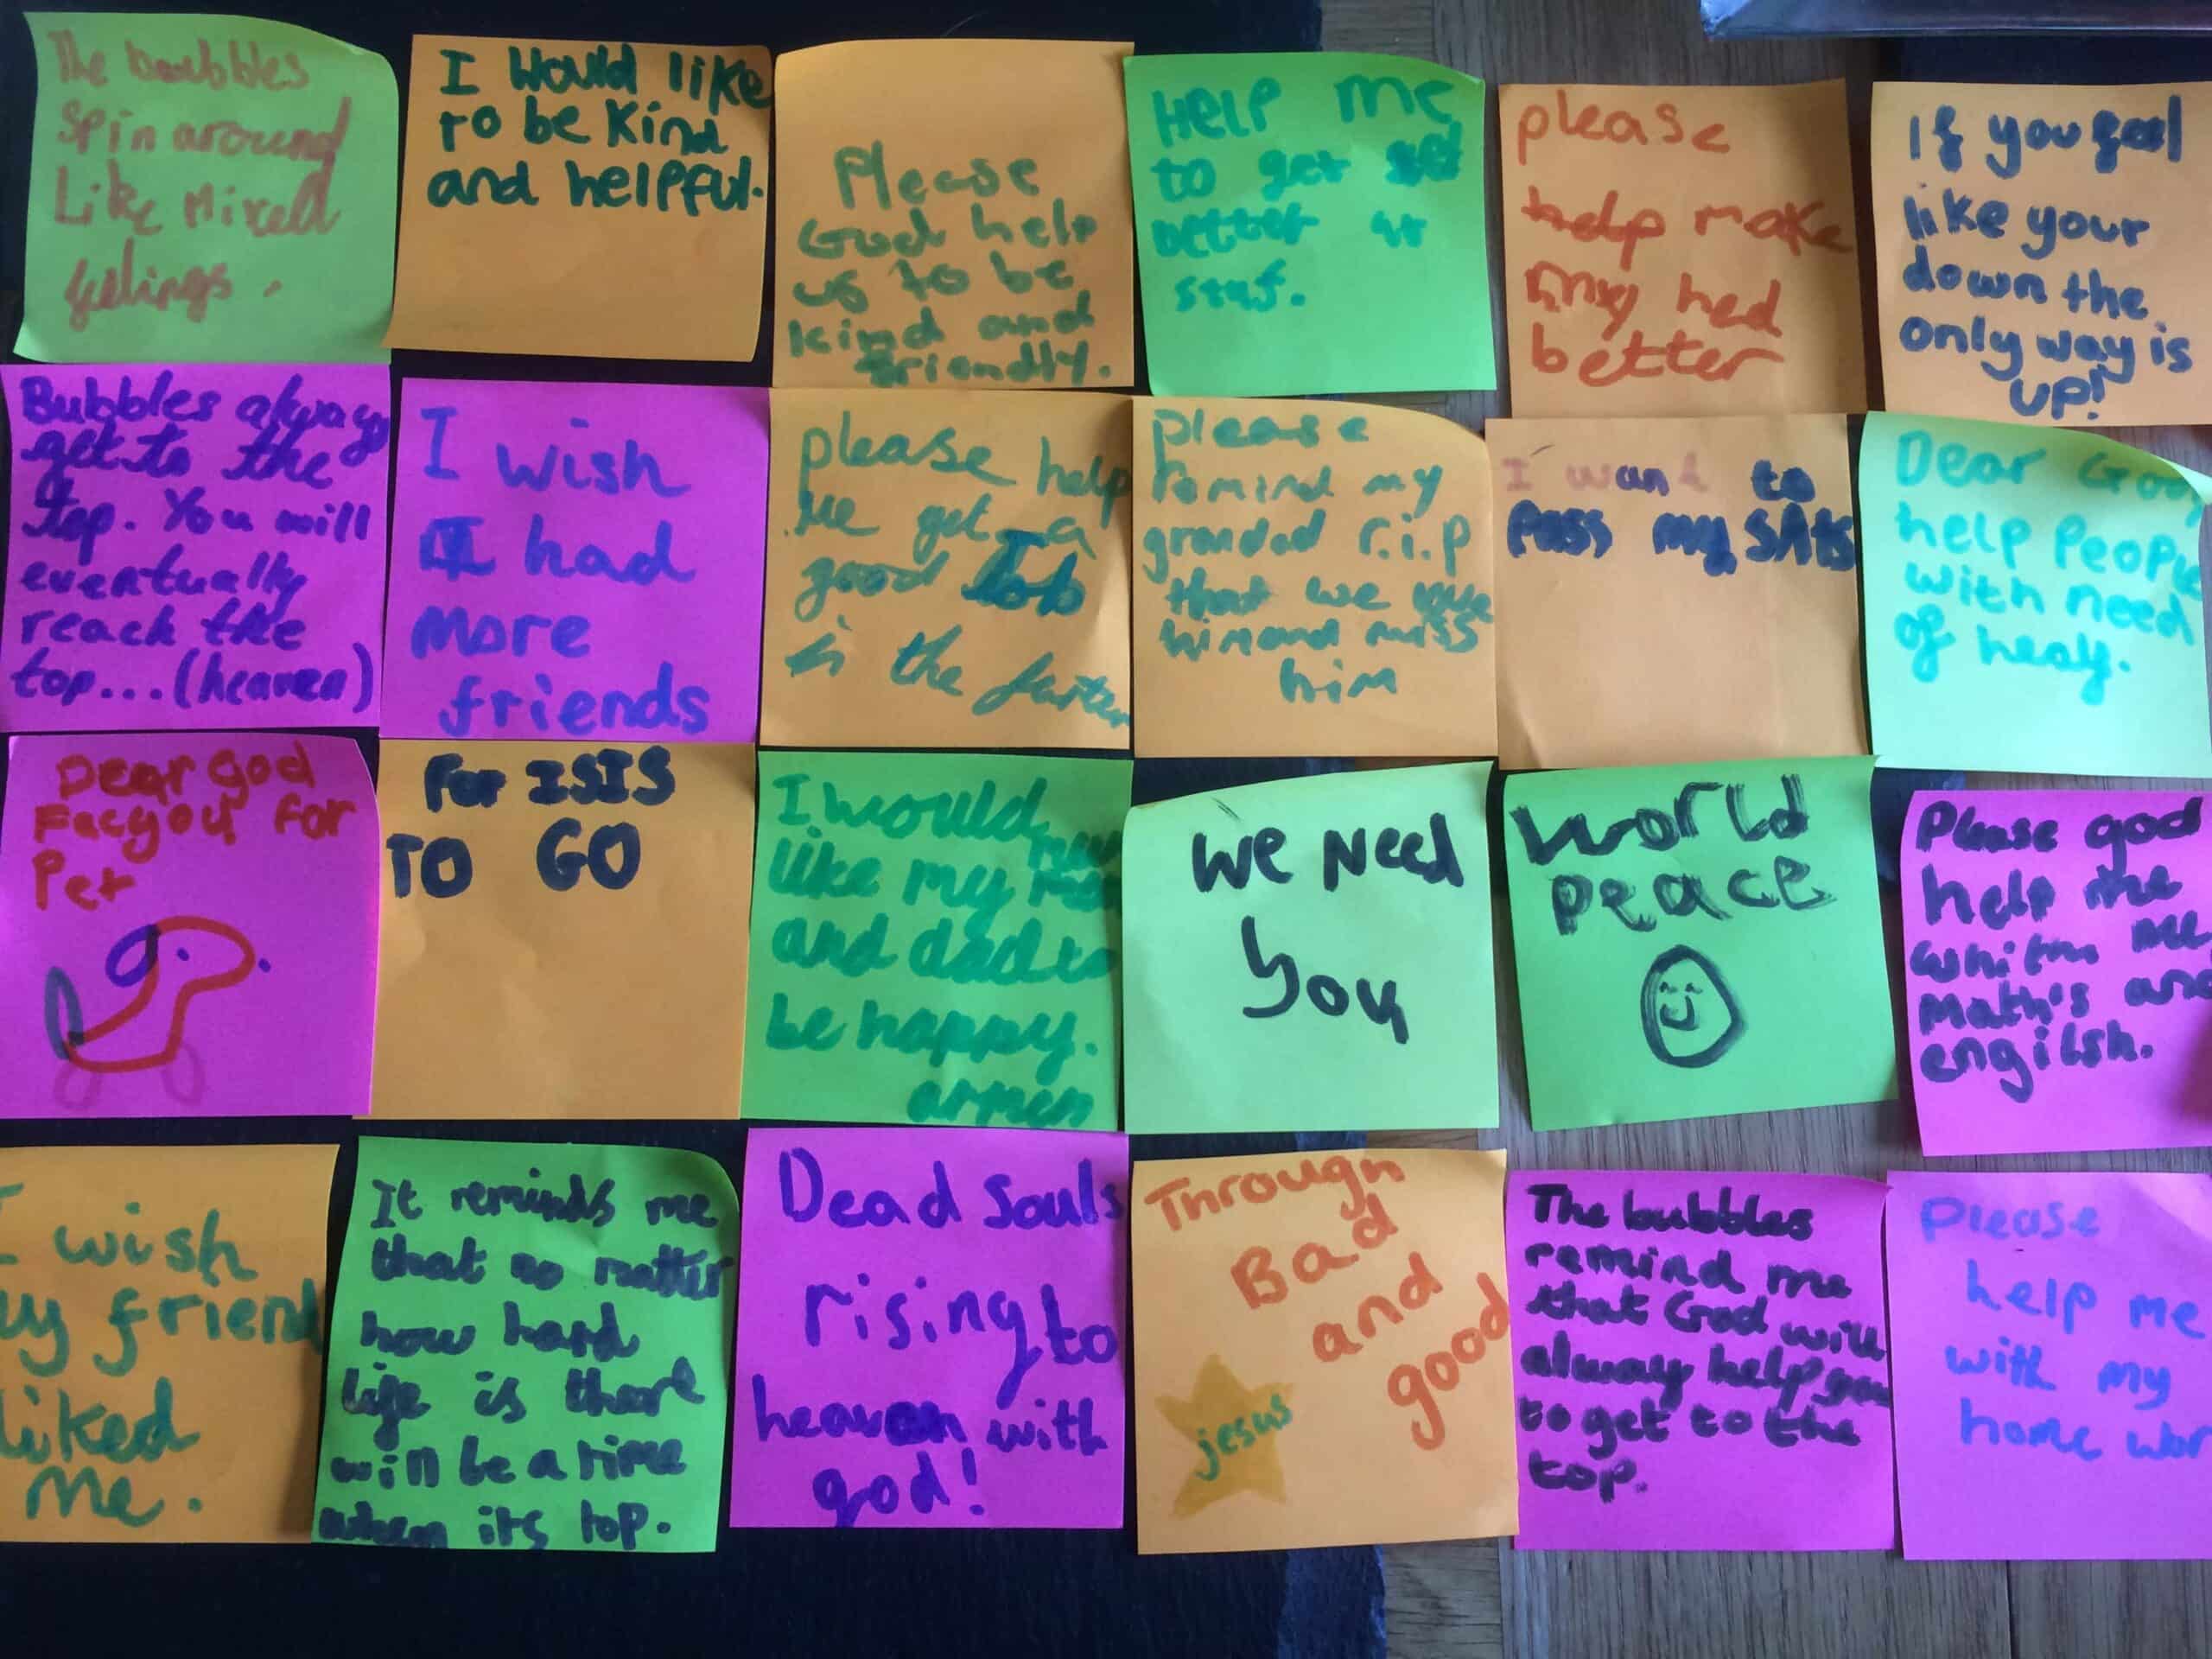 The bubbles
Spin around
Like Mixed
feelings.
I Would like
to be Kind
and helpful.
Please
God help
us to be
kind and
friendly.
HELP me
to get
better at
stuf.
please
help make
my hed
better
If you feel
like your
down the
only way is
up!
Bubbles always
get to the
top. You will
eventually
reach the
top...(heaven)
I wish
I had
more
friends
please help
me get a
good Job
in the
please
remind my
grandad r.i.p
that we love
him and miss
him
I want to
pass my SAts
Dear God
help People
with need
of healy.
Dear God
for
Pet
For ISIS
TO GO
I would
like my mum
and dad to
be happy.
armen
We Need
You
World
peace
Please god
help me
me
Math's and
engilsh.
I wish
my friend
liked
me.
It reminds me
that no matter
how hard
life is there
will be a time
when its top.
Dead Souls
rising to
heaven with
god!
Through
Bad
and
good
jesus
The bubbles
remind me
that God will
always help you
to get to the
top.
Please
help me
with my
home wor